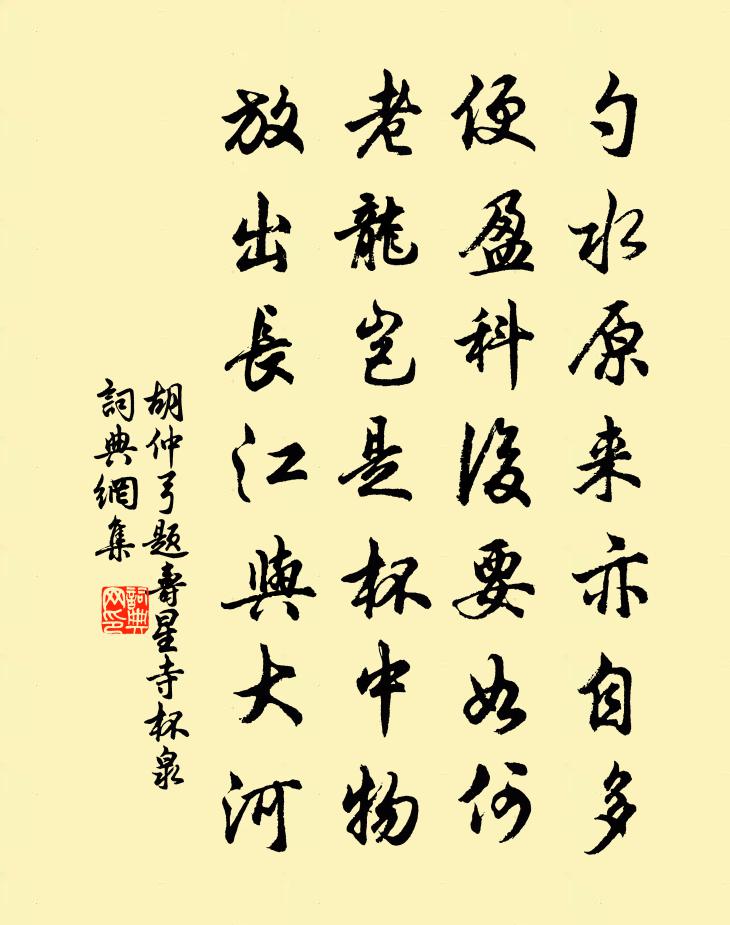 勺水原来亦自多
便盈科後要如何
老龍豈是杯中物
放出長江與大河
胡仲弓題壽星寺杯泉
詞典網集
詞典网印